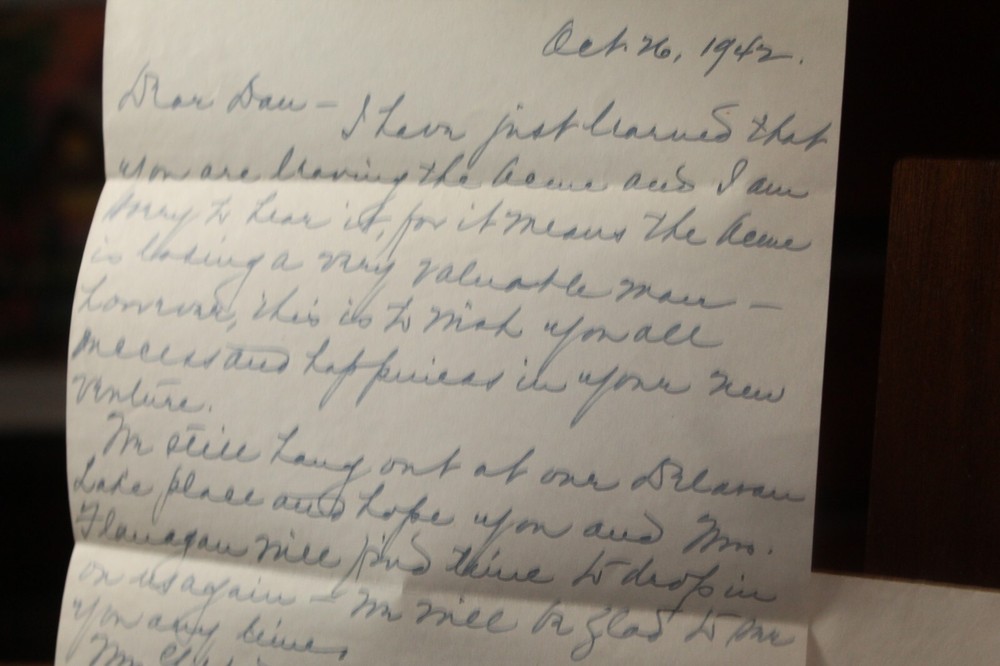 Oct. 26, 1942.
Dear Dan – I have just learned that
you are leaving the Acme and I am
sorry to hear it, for it means the Acme
is losing a very valuable man –
however, this is to wish you all
success and happiness in your new
venture.
We still hang out at our Delavan
Lake place and hope you and Mrs.
Flanagan will find time to drop in
on us again – We will be glad to see
you any time.